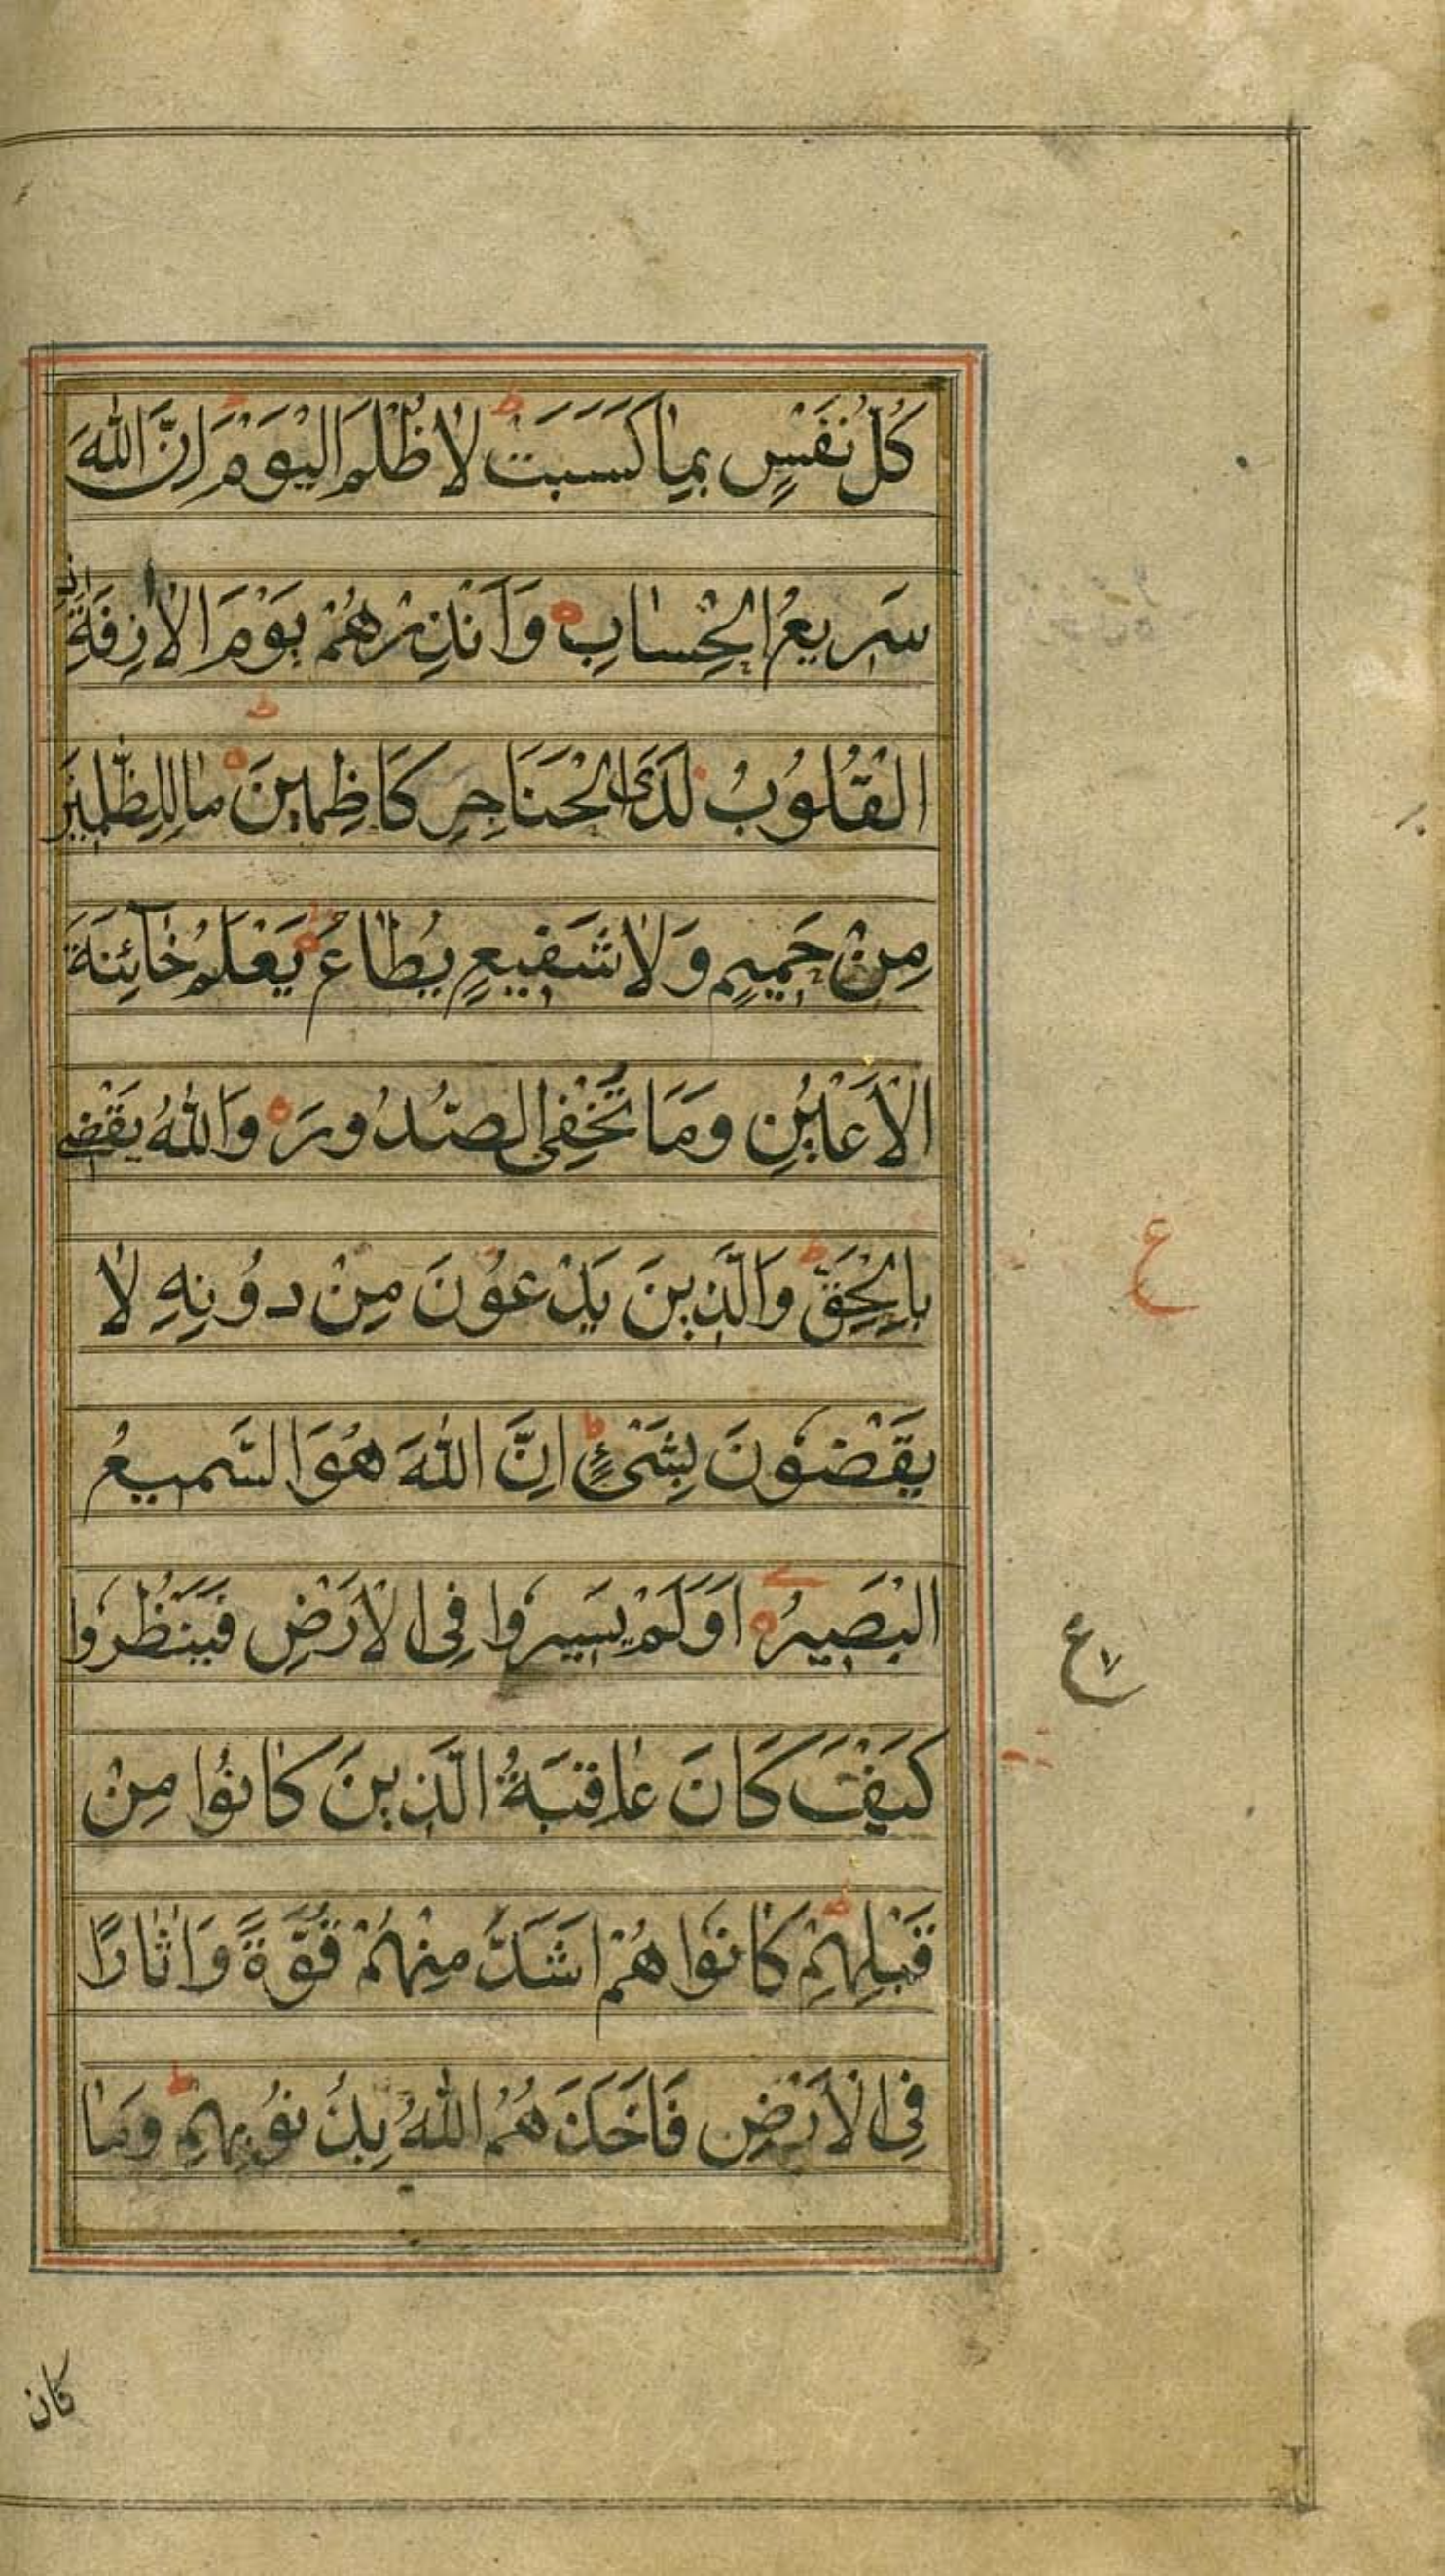 كُلُّ نَفْسٍ بِمٰا كَسَبَتْ ط لٰا ظُلْمَ الْيَوْمَ ط اِنَّ اللّٰهَ
سَرِيعُ الْحِسٰابِ ه وَاَنْذِرْهُمْ يَوْمَ الْاٰزِفَةِ اِذِ
الْقُلُوبُ لَدَى الْحَنَاجِرِ كَاظِمٖينَ ه ط مٰا لِلظّٰلِمٖينَ
مِنْ حَمٖيمٍ وَلٰا شَفٖيعٍ يُطٰاعُ ه ط يَعْلَمُ خٰآئِنَةَ
الْاَعْيُنِ وَمَا تُخْفِى الصُّدُورَ ه وَاللّٰهُ يَقْضٖى
بِالْحَقِّ ط وَالَّذٖينَ يَدْعُونَ مِنْ دُونِهِ لٰا
يَقْضُونَ بِشَىْءٍ ط اِنَّ اللّٰهَ هُوَ السَّمٖيعُ
الْبَصٖيرُ ه اَوَلَمْ يَسٖيرُوا فِى الْاَرْضِ فَيَنْظُرُوا
كَيْفَ كَانَ عٰاقِبَةُ الَّذٖينَ كٰانُوا مِنْ
قَبْلِهِمْ ط كٰانُوا هُمْ اَشَدَّ مِنْهُمْ قُوَّةً وَاٰثٰارًا
فِى الْاَرْضِ فَاَخَذَهُمُ اللّٰهُ بِذُنُوبِهِمْ ط وَمٰا
ع
ع
كان